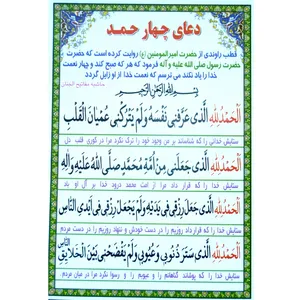 دعای چهار حمد
قطب راوندی از حضرت امیرالمومنین (ع) روایت کرده است که حضرت
حضرت رسول صلی الله علیه و آله فرمود که هر که صبح کند و چهار نعمت
خدا را یاد نکند می ترسم که نعمت خدا از او زایل گردد
بسم الله الرحمن الرحیم
اَلْحَمْدُلِلّهِ الَّذی عَرَّفَنی نَفْسَهُ وَلَمْ یَتْرُکْنی عُمْیانَ الْقَلْبِ
ستایش خدایی را که شناساند بر من وجود خود را و ترک نکرد مرا در کوری قلب دل
اَلْحَمْدُلِلّهِ الَّذی جَعَلَنی مِنْ اُمَّةِ مُحَمَّدٍ صَلَّی اللهُ عَلَیْهِ وَالِهِ
ستایش خدا را که قرار داد مرا از امت محمد درود خدا بر آل او باد
اَلْحَمْدُلِلّهِ الَّذی جَعَلَ رِزْقی فی یَدَیْهِ وَلَمْ یَجْعَلْ رِزْقی فی اَیْدِی النّاسِ
ستایش خدا را که قرار داد روزیم را در دست خودش و ننهاد روزیم را در دست مردم
اَلْحَمْدُلِلّهِ الَّذی سَتَرَ ذُنُوبی وَعُیُوبی وَلَمْ یَفْضَحْنی بَیْنَ الْخَلایِقِ
ستایش خدا را که پوشاند گناهانم را و عیوبم را و رسوا نکرد مرا در میان مردم